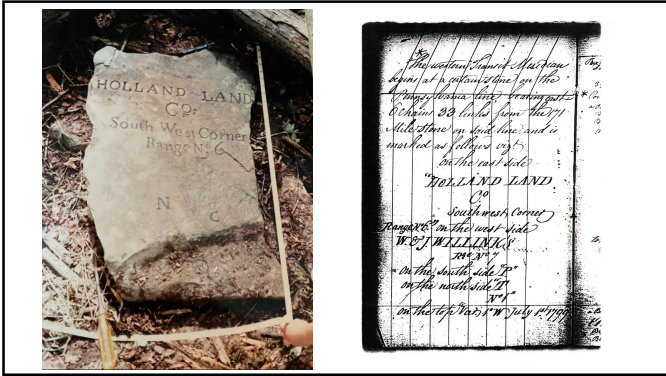 HOLLAND LAND
Co:
South West Corner
Range No 6
N
C
The western Transit Meridian
begins at a certain stone on the
Pennsylvania line, bearing east
6 chains 33 links from the 171
Mile Stone on said line and is
marked as follows vizt
on the east side
"HOLLAND LAND
Co
Southwest Corner
Range No 6" on the west side
W. & J WILLINKS
No 7
on the south side "P"
on the north side "T"
No 1"
on the top July 1st 1799